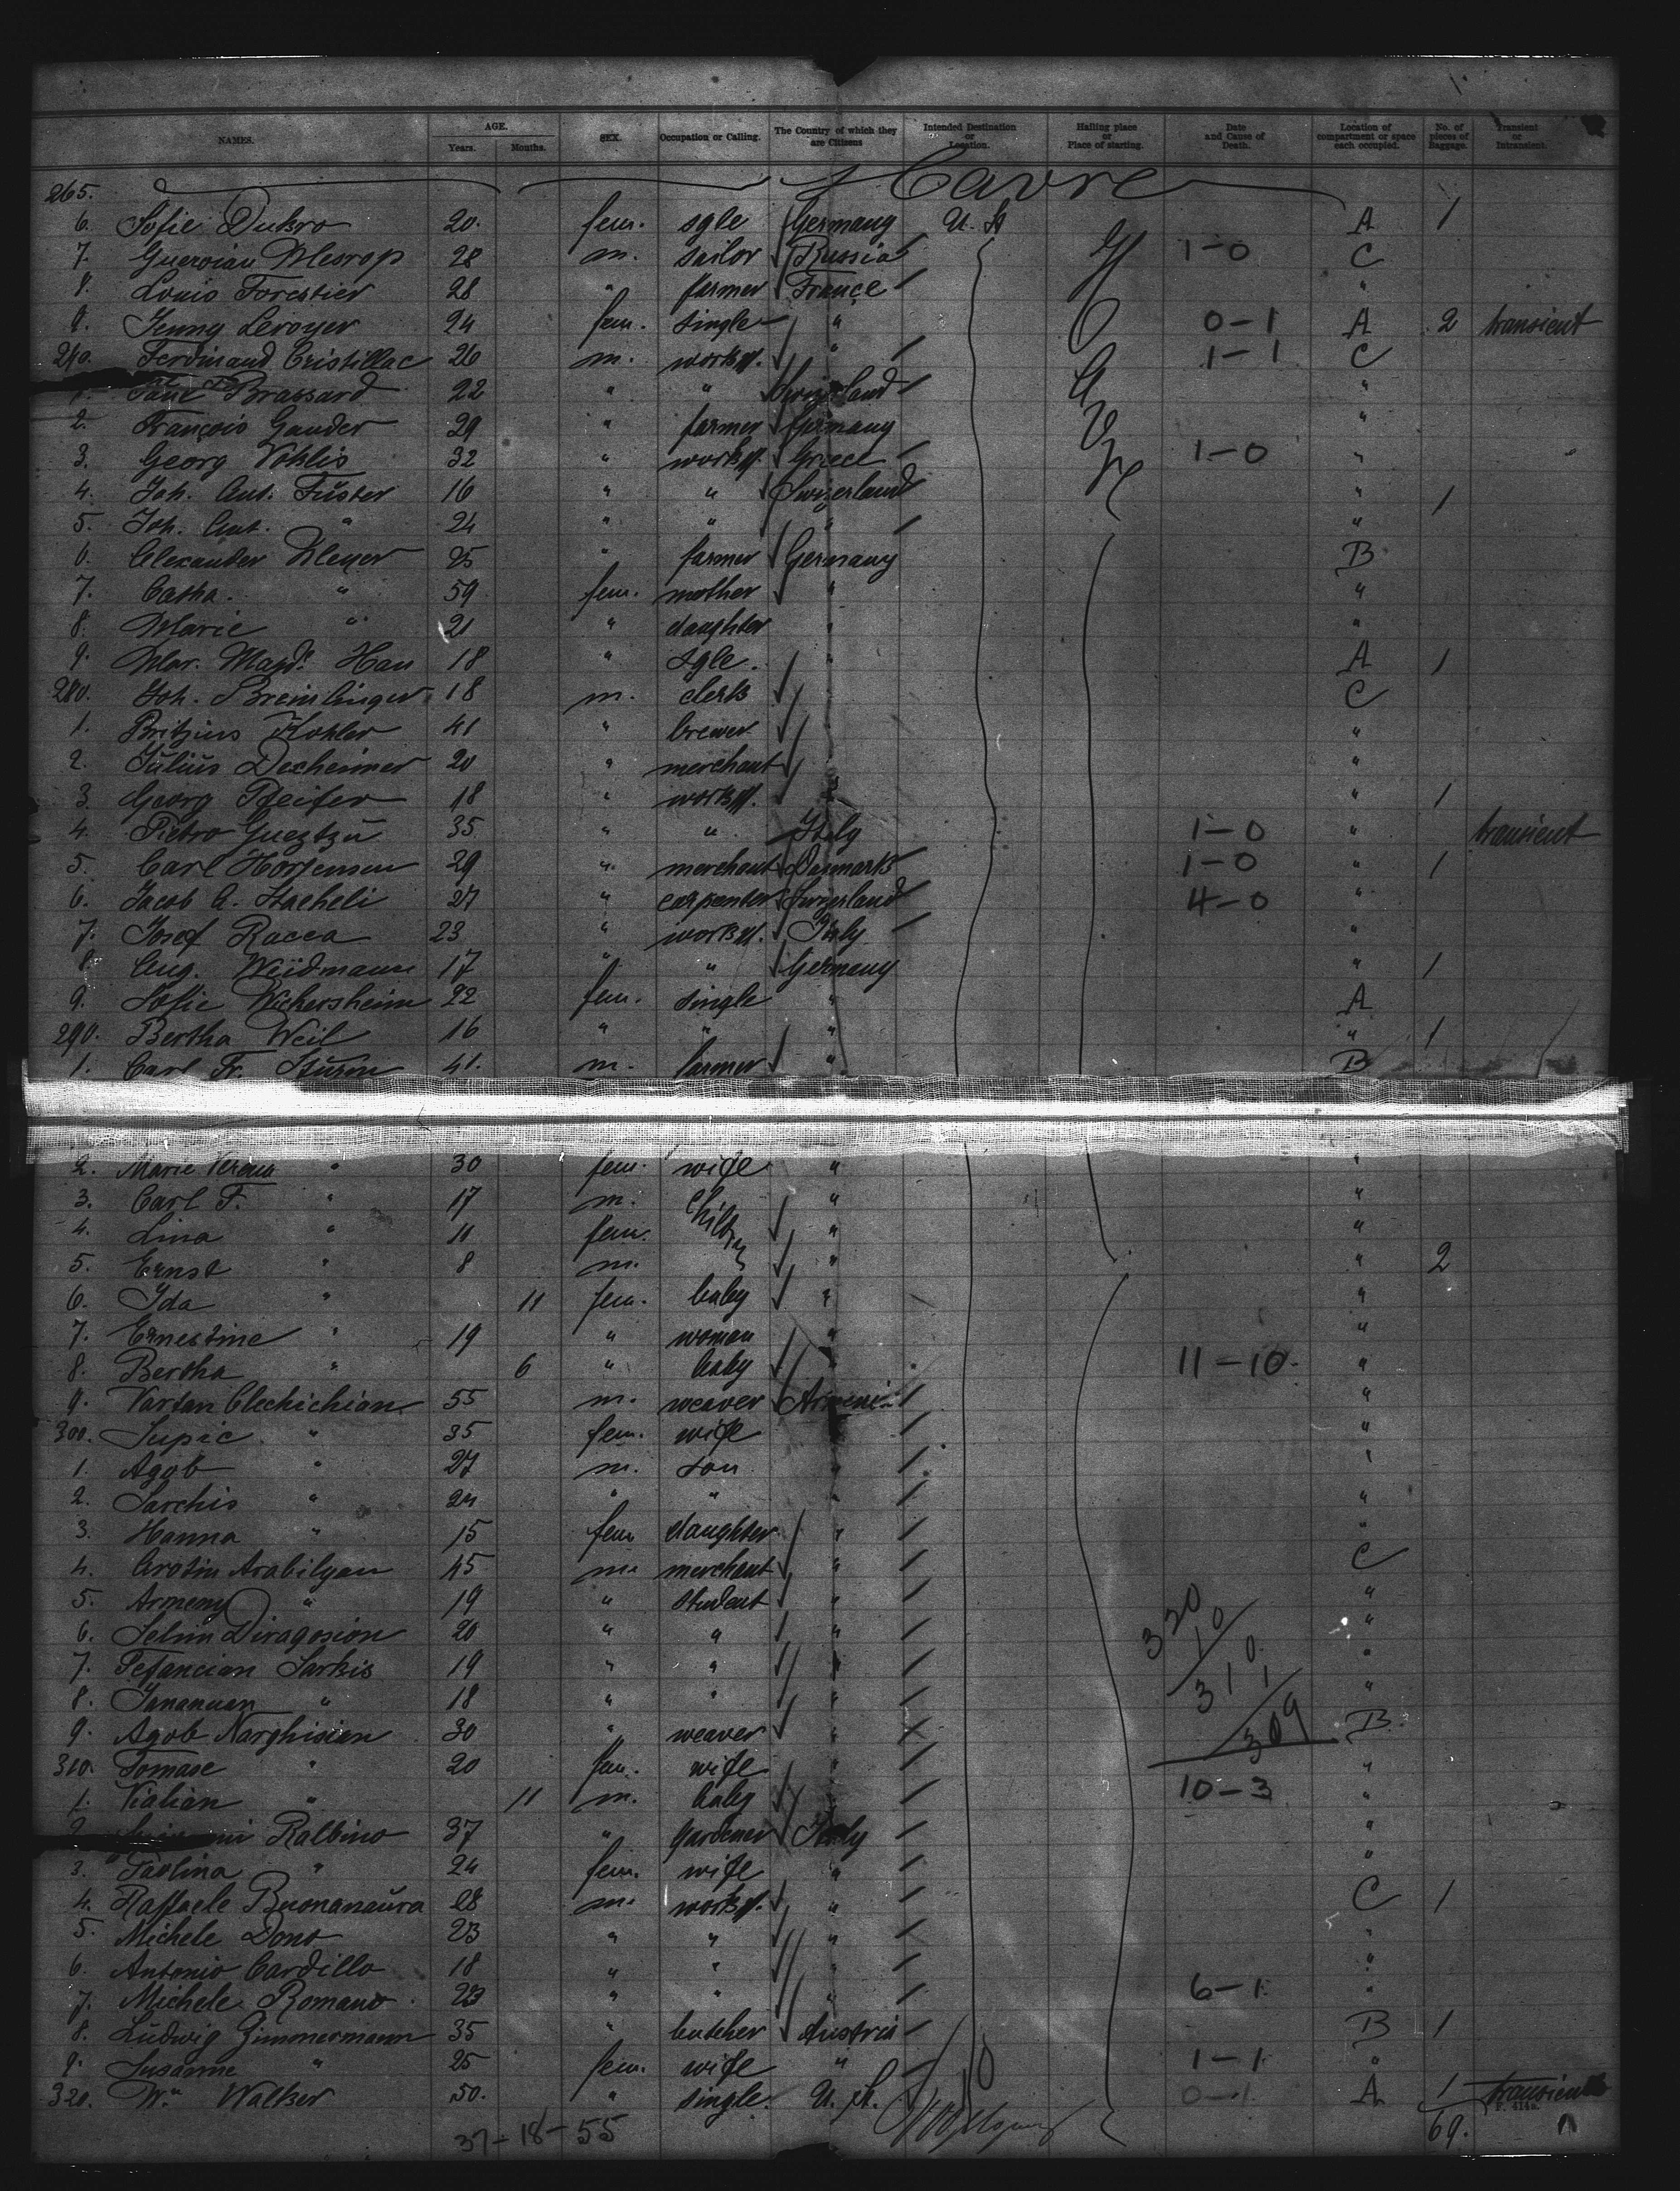 NAMES. AGE. Years. Months. SEX. Occupation or Calling. The Country of which they are Citizens Intended Destination or Location. Hailing place or Place of starting. Date and Cause of Death. Location of compartment or space each occupied. No. of pieces of Baggage. Transient or Intransient.
265. Havre
6. Sofie Dubro 20. fem. sgle Germany U. St A 1
7. Guervian Mesrop 28 m. sailor Russia 1-0 C
8. Louis Forestier 28 " farmer France "
9. Jenny Leroyer 24 fem. single " 0-1 A 2 transient
240. Ferdinand Cristillac 26 m. workm. " 1-1 C
1. Brassard 22 " " Swizerland "
2. François Gander 29 " farmer Germany "
3. Georg Vohlis 32 " workm. Griece 1-0 "
4. Joh. Ant. Füster 16 " " Swizerland " 1
5. Joh. Ant. " 24 " " " "
6. Alexander Meyer 25 " farmer Germany B
7. Catha. " 59 fem. mother " "
8. Marie " 21 " daughter " "
9. Mar. Magd. Hau 18 " sgle. " A 1
280. Joh. Breinlinger 18 m. clerk " C
1. Kohler 41 " brewer " "
2. Julius Dexheimer 20 " merchant " "
3. Georg Pfeifer 18 " workm. " " 1
4. Pietro 35 " " Italy 1-0 " transient
5. Carl Hortensen 29 " merchant Danmark 1-0 " 1
6. Jacob A. Staeheli 27 " carpenter Swizerland 4-0 "
7. Josef Racca 23 " workm. Italy "
8. Aug. Weidmann 17 " " Germany " 1
9. Sofie Wickersheim 22 fem. single " A
290. Bertha Weil 16 " " " " 1
1. Carl Fr. Sturm 41. m. farmer " B
2. Marie Verena " 30 fem. wife " "
3. Carl F. " 17 m. childr. " "
4. Lina " 11 fem. " "
5. Ernst " 8 m. " " 2
6. Ida " 11 fem. baby " "
7. Ernestine " 19 " woman " "
8. Bertha " 6 " baby " 11-10 "
9. Vartan Clechichian 55 m. weaver Armeni "
300. Supic " 35 fem. wife "
1. Agob " 27 m. son " "
2. Sarchis " 24 " " " "
3. Hanna " 15 fem daughter " "
4. Arotin Arabilyan 45 m. merchant " C
5. Armeny " 19 " student " "
6. Selim Diragosion 20 " " " 320 10 "
7. Pefancian Sarkis 19 " " " 310 1 "
8. " 18 " " " "
9. Agob Narghisian 30 " weaver " 309 B
310. Tomase " 20 fem. wife " "
1. Vialian " 11 m. baby " 10-3 "
2. Ralbino 37 " gardener Italy "
3. Paolina " 24 fem. wife " "
4. Raffaele Buonanaura 28 m. workm. " C 1
5. Michele Dono 23 " " " "
6. Antonio Cardillo 18 " " " "
7. Michele Romano 23 " " " 6-1 "
8. Ludwig Zimmermann 35 " butcher Austria B 1
9. Susanne " 25 fem. wife " 1-1 "
320. Wm. Walker 50. " single U. St. 0-1 A 1 transient
37-18-55 69.